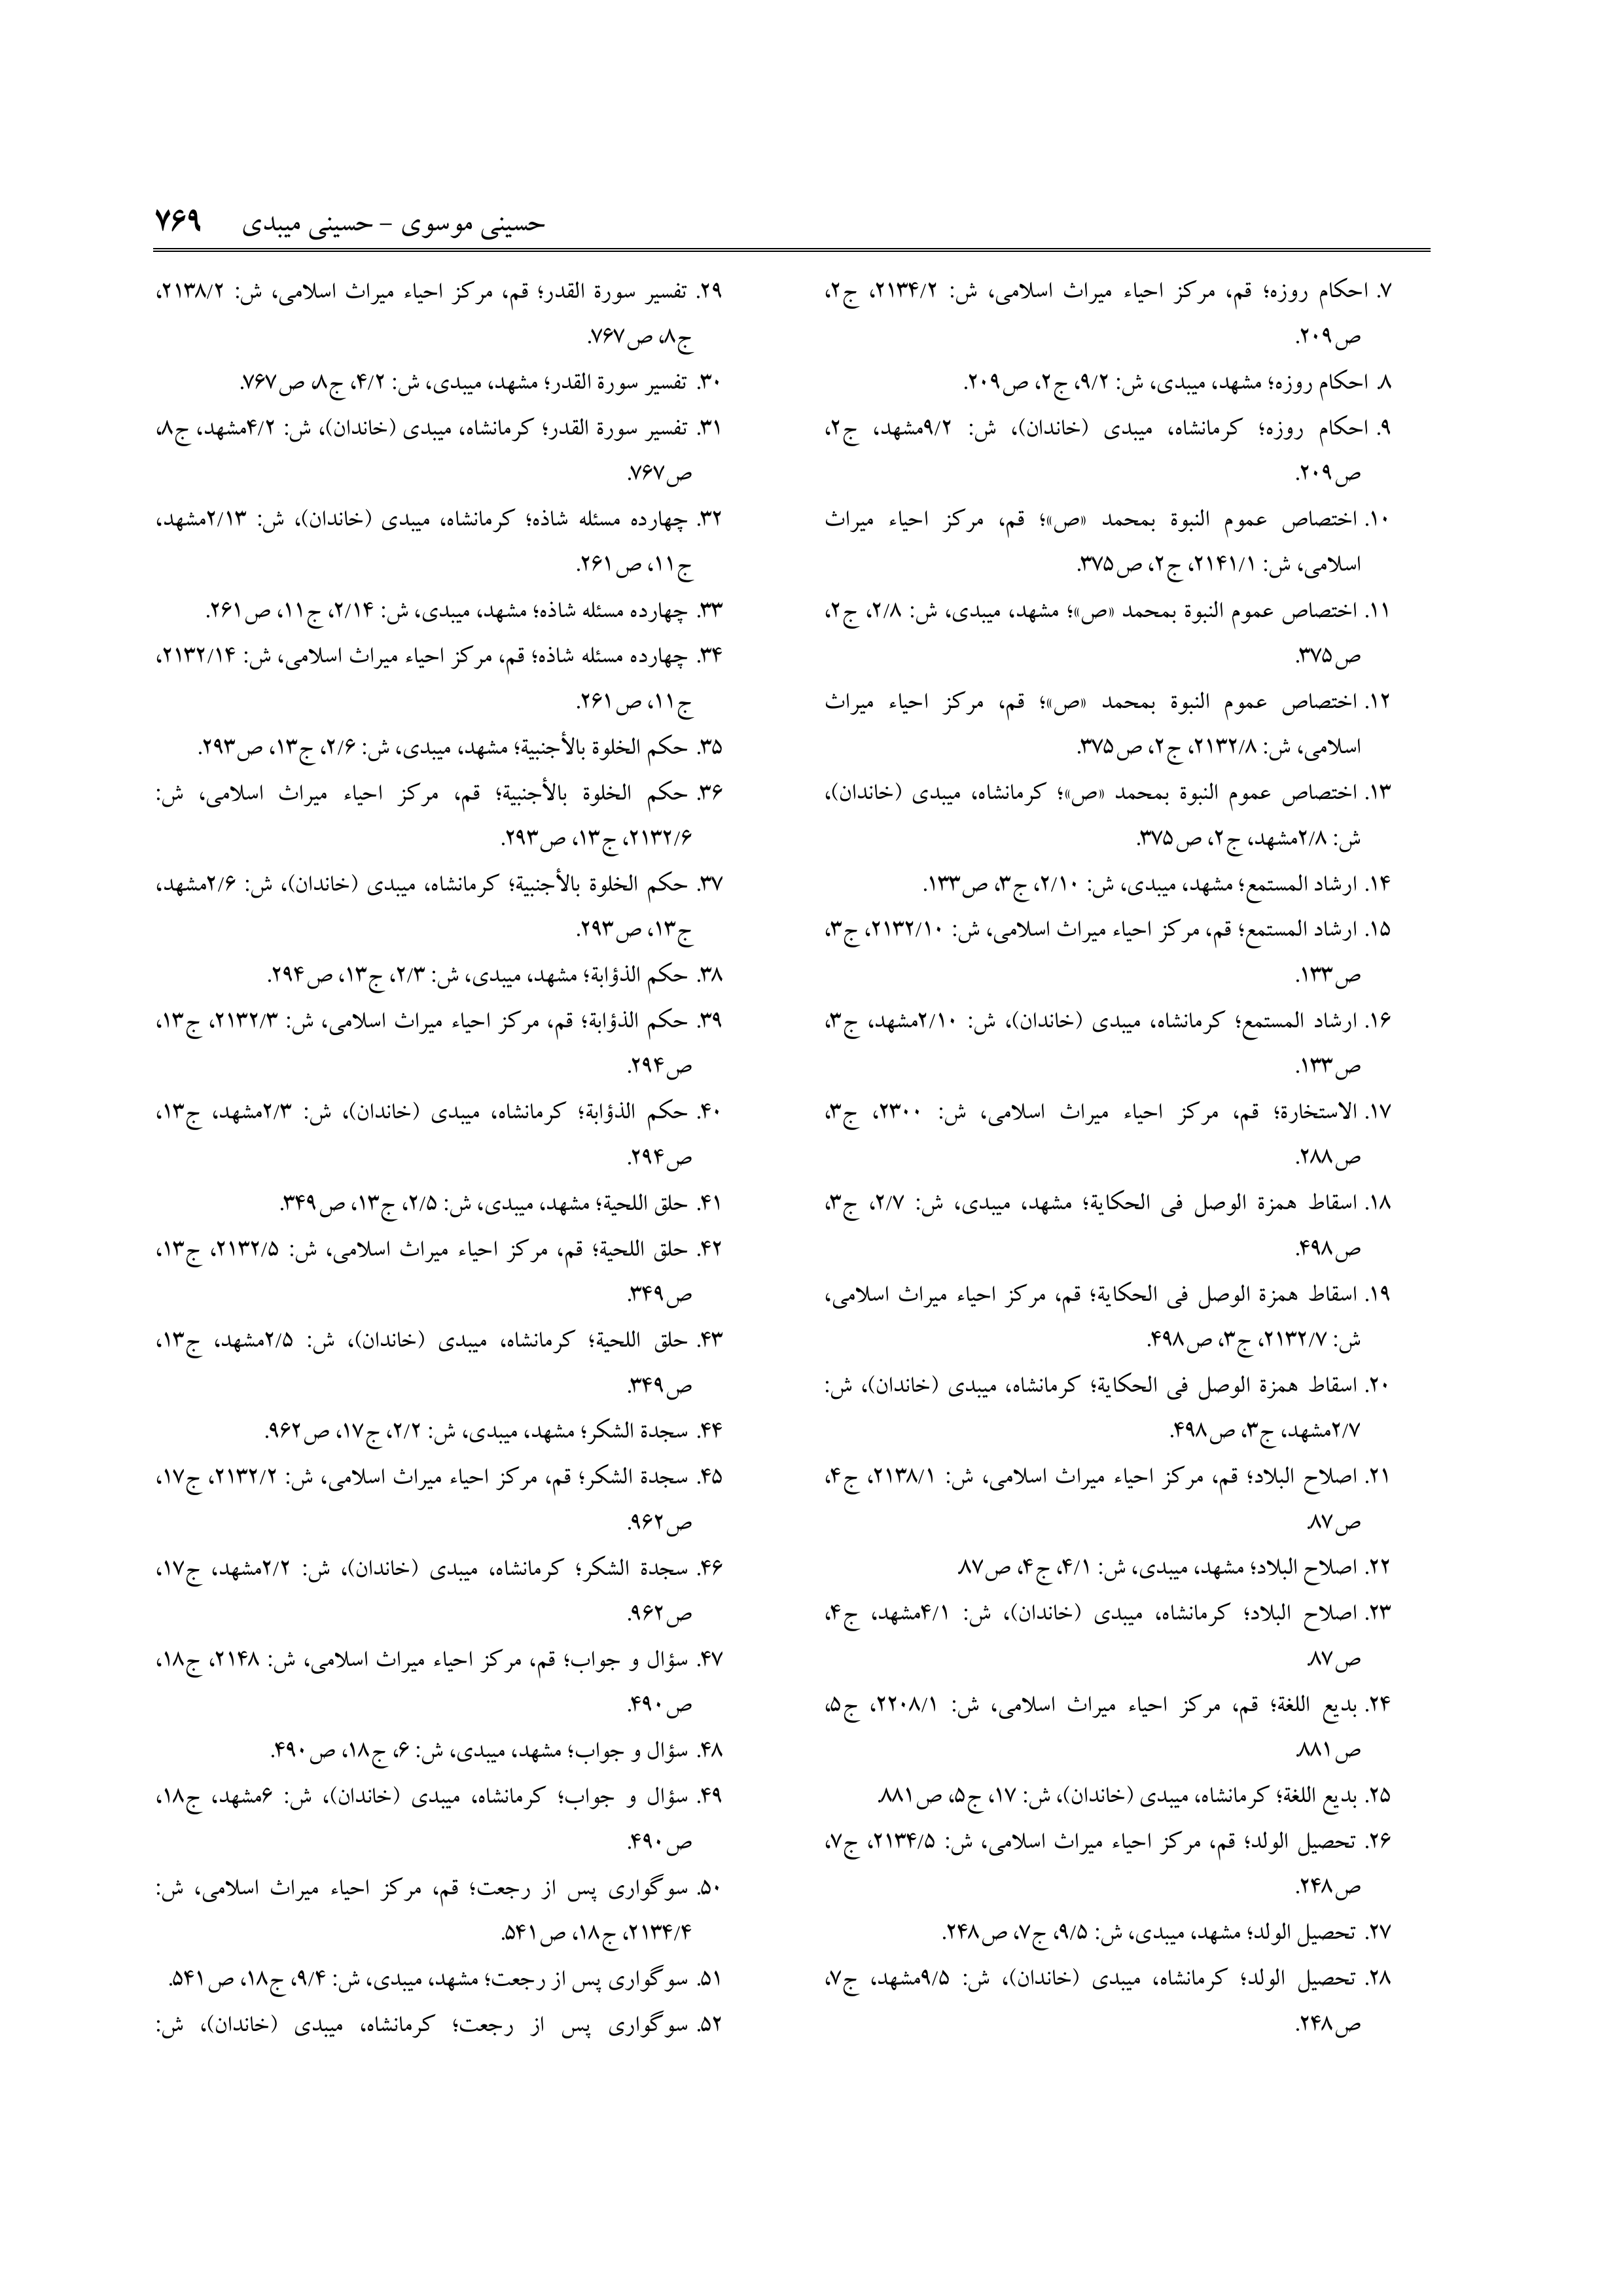 حسینی موسوی – حسینی میبدی ۷۶۹
۷. احکام روزه؛ قم، مرکز احیاء میراث اسلامی، ش: ۲۱۳۴/۲، ج۲،
ص۲۰۹.
۸. احکام روزه؛ مشهد، میبدی، ش: ۹/۲، ج۲، ص۲۰۹.
۹. احکام روزه؛ کرمانشاه، میبدی (خاندان)، ش: ۹/۲مشهد، ج۲،
ص۲۰۹.
۱۰. اختصاص عموم النبوة بمحمد «ص»؛ قم، مرکز احیاء میراث
اسلامی، ش: ۲۱۴۱/۱، ج۲، ص۳۷۵.
۱۱. اختصاص عموم النبوة بمحمد «ص»؛ مشهد، میبدی، ش: ۲/۸، ج۲،
ص۳۷۵.
۱۲. اختصاص عموم النبوة بمحمد «ص»؛ قم، مرکز احیاء میراث
اسلامی، ش: ۲۱۳۲/۸، ج۲، ص۳۷۵.
۱۳. اختصاص عموم النبوة بمحمد «ص»؛ کرمانشاه، میبدی (خاندان)،
ش: ۲/۸مشهد، ج۲، ص۳۷۵.
۱۴. ارشاد المستمع؛ مشهد، میبدی، ش: ۲/۱۰، ج۳، ص۱۳۳.
۱۵. ارشاد المستمع؛ قم، مرکز احیاء میراث اسلامی، ش: ۲۱۳۲/۱۰، ج۳،
ص۱۳۳.
۱۶. ارشاد المستمع؛ کرمانشاه، میبدی (خاندان)، ش: ۲/۱۰مشهد، ج۳،
ص۱۳۳.
۱۷. الاستخارة؛ قم، مرکز احیاء میراث اسلامی، ش: ۲۳۰۰، ج۳،
ص۲۸۸.
۱۸. اسقاط همزة الوصل فی الحکایة؛ مشهد، میبدی، ش: ۲/۷، ج۳،
ص۴۹۸.
۱۹. اسقاط همزة الوصل فی الحکایة؛ قم، مرکز احیاء میراث اسلامی،
ش: ۲۱۳۲/۷، ج۳، ص۴۹۸.
۲۰. اسقاط همزة الوصل فی الحکایة؛ کرمانشاه، میبدی (خاندان)، ش:
۲/۷مشهد، ج۳، ص۴۹۸.
۲۱. اصلاح البلاد؛ قم، مرکز احیاء میراث اسلامی، ش: ۲۱۳۸/۱، ج۴،
ص۸۷.
۲۲. اصلاح البلاد؛ مشهد، میبدی، ش: ۴/۱، ج۴، ص۸۷.
۲۳. اصلاح البلاد؛ کرمانشاه، میبدی (خاندان)، ش: ۴/۱مشهد، ج۴،
ص۸۷.
۲۴. بدیع اللغة؛ قم، مرکز احیاء میراث اسلامی، ش: ۲۲۰۸/۱، ج۵،
ص۸۸۱.
۲۵. بدیع اللغة؛ کرمانشاه، میبدی (خاندان)، ش: ۱۷، ج۵، ص۸۸۱.
۲۶. تحصیل الولد؛ قم، مرکز احیاء میراث اسلامی، ش: ۲۱۳۴/۵، ج۷،
ص۲۴۸.
۲۷. تحصیل الولد؛ مشهد، میبدی، ش: ۹/۵، ج۷، ص۲۴۸.
۲۸. تحصیل الولد؛ کرمانشاه، میبدی (خاندان)، ش: ۹/۵مشهد، ج۷،
ص۲۴۸.
۲۹. تفسیر سورة القدر؛ قم، مرکز احیاء میراث اسلامی، ش: ۲۱۳۸/۲،
ج۸، ص۷۶۷.
۳۰. تفسیر سورة القدر؛ مشهد، میبدی، ش: ۴/۲، ج۸، ص۷۶۷.
۳۱. تفسیر سورة القدر؛ کرمانشاه، میبدی (خاندان)، ش: ۴/۲مشهد، ج۸،
ص۷۶۷.
۳۲. چهارده مسئله شاذه؛ کرمانشاه، میبدی (خاندان)، ش: ۲/۱۳مشهد،
ج۱۱، ص۲۶۱.
۳۳. چهارده مسئله شاذه؛ مشهد، میبدی، ش: ۲/۱۴، ج۱۱، ص۲۶۱.
۳۴. چهارده مسئله شاذه؛ قم، مرکز احیاء میراث اسلامی، ش: ۲۱۳۲/۱۴،
ج۱۱، ص۲۶۱.
۳۵. حکم الخلوة بالأجنبیة؛ مشهد، میبدی، ش: ۲/۶، ج۱۳، ص۲۹۳.
۳۶. حکم الخلوة بالأجنبیة؛ قم، مرکز احیاء میراث اسلامی، ش:
۲۱۳۲/۶، ج۱۳، ص۲۹۳.
۳۷. حکم الخلوة بالأجنبیة؛ کرمانشاه، میبدی (خاندان)، ش: ۲/۶مشهد،
ج۱۳، ص۲۹۳.
۳۸. حکم الذؤابة؛ مشهد، میبدی، ش: ۲/۳، ج۱۳، ص۲۹۴.
۳۹. حکم الذؤابة؛ قم، مرکز احیاء میراث اسلامی، ش: ۲۱۳۲/۳، ج۱۳،
ص۲۹۴.
۴۰. حکم الذؤابة؛ کرمانشاه، میبدی (خاندان)، ش: ۲/۳مشهد، ج۱۳،
ص۲۹۴.
۴۱. حلق اللحیة؛ مشهد، میبدی، ش: ۲/۵، ج۱۳، ص۳۴۹.
۴۲. حلق اللحیة؛ قم، مرکز احیاء میراث اسلامی، ش: ۲۱۳۲/۵، ج۱۳،
ص۳۴۹.
۴۳. حلق اللحیة؛ کرمانشاه، میبدی (خاندان)، ش: ۲/۵مشهد، ج۱۳،
ص۳۴۹.
۴۴. سجدة الشکر؛ مشهد، میبدی، ش: ۲/۲، ج۱۷، ص۹۶۲.
۴۵. سجدة الشکر؛ قم، مرکز احیاء میراث اسلامی، ش: ۲۱۳۲/۲، ج۱۷،
ص۹۶۲.
۴۶. سجدة الشکر؛ کرمانشاه، میبدی (خاندان)، ش: ۲/۲مشهد، ج۱۷،
ص۹۶۲.
۴۷. سؤال و جواب؛ قم، مرکز احیاء میراث اسلامی، ش: ۲۱۴۸، ج۱۸،
ص۴۹۰.
۴۸. سؤال و جواب؛ مشهد، میبدی، ش: ۶، ج۱۸، ص۴۹۰.
۴۹. سؤال و جواب؛ کرمانشاه، میبدی (خاندان)، ش: ۶مشهد، ج۱۸،
ص۴۹۰.
۵۰. سوگواری پس از رجعت؛ قم، مرکز احیاء میراث اسلامی، ش:
۲۱۳۴/۴، ج۱۸، ص۵۴۱.
۵۱. سوگواری پس از رجعت؛ مشهد، میبدی، ش: ۹/۴، ج۱۸، ص۵۴۱.
۵۲. سوگواری پس از رجعت؛ کرمانشاه، میبدی (خاندان)، ش: